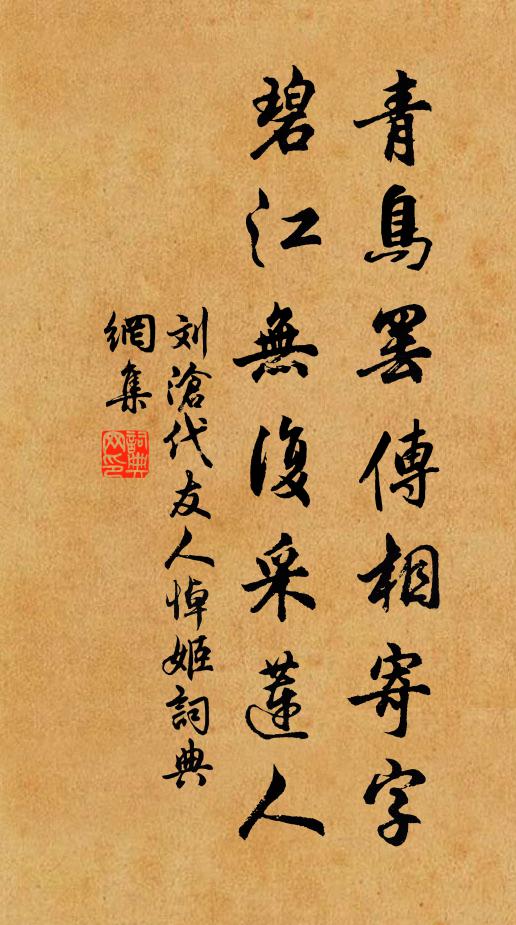 青鳥罢傳相寄字
碧江無復采蓮人
刘滄代友人悼姬詞典
網集
詞典网印